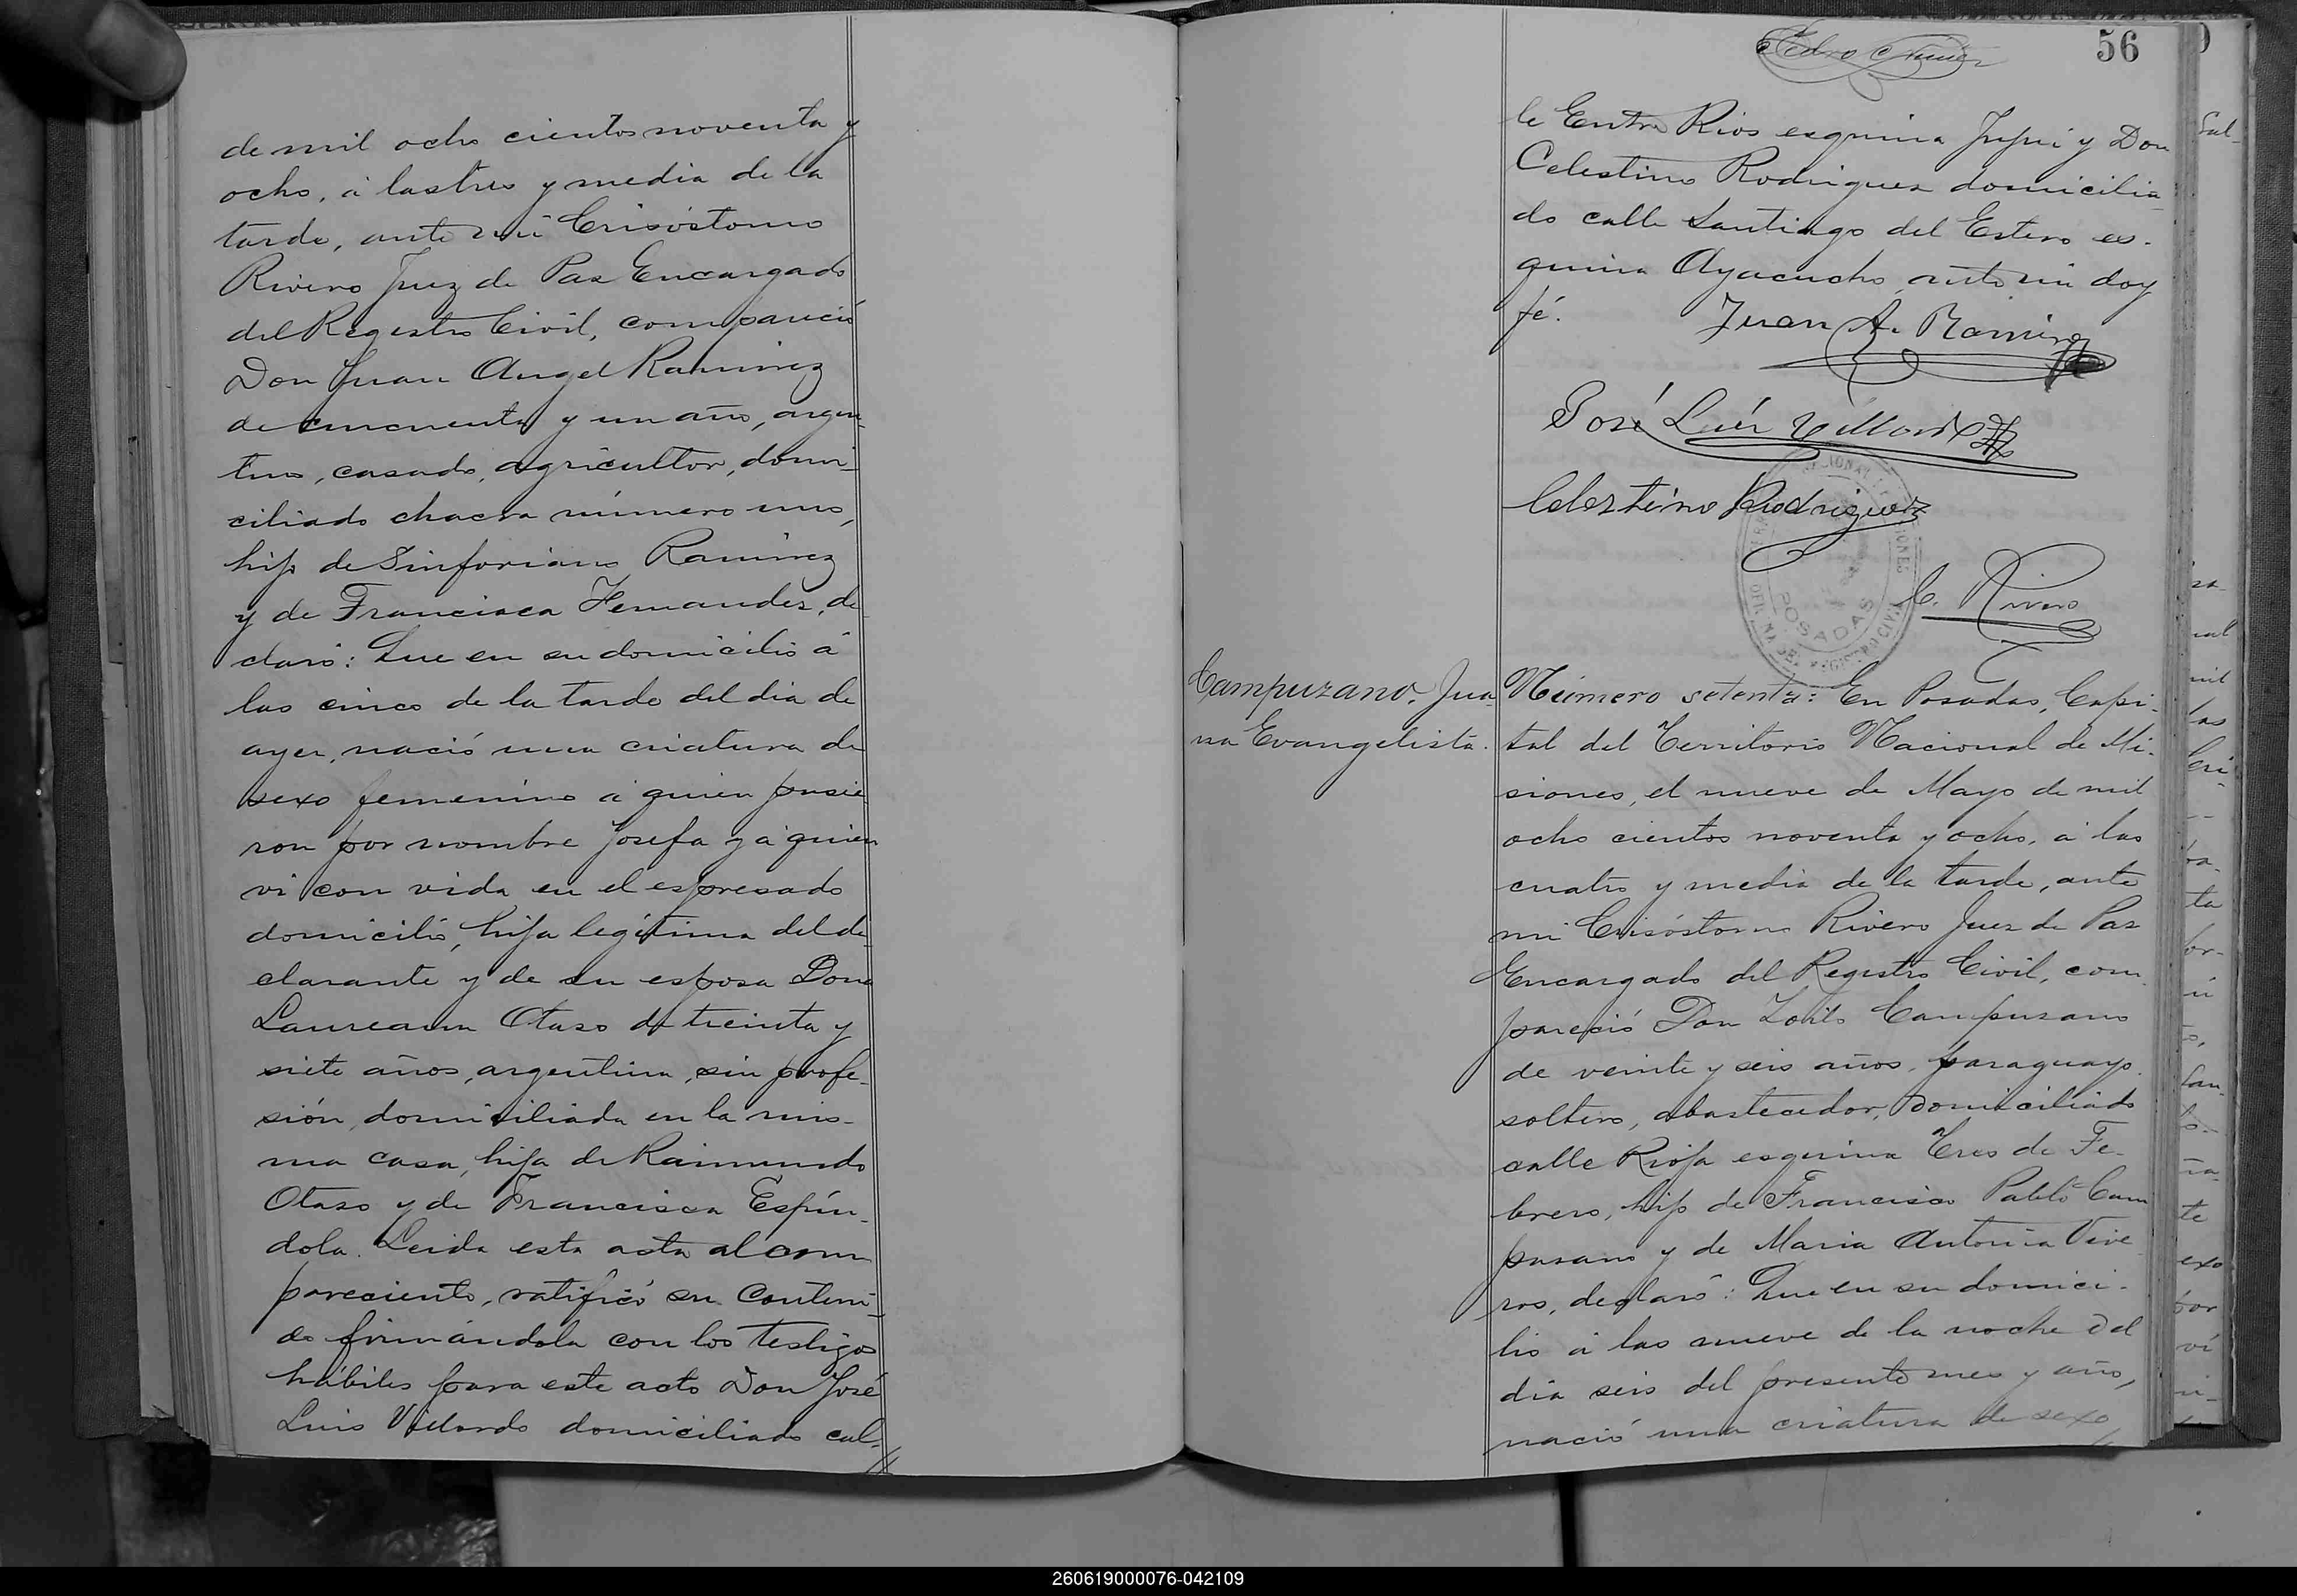 de mil ocho cientos noventa y
ocho, á las tres y media de la
tarde, ante mi Crisóstomo
Rivero Juez de Paz Encargado
del Registro Civil, compareció
Don Juan Angel Ramirez
de cincuenta y un año, argen-
tino, casado, agricultor, domi-
ciliado chacra número uno,
hijo de Sinforiano Ramirez
y de Francisca Fernandez, de
claró: Que en su domicilio á
las cinco de la tarde del dia de
ayer, nació una criatura de
sexo femenino á quien pusie
ron por nombre Josefa y á quien
vi con vida en el espresado
domicilio, hija legítima del de-
clarante y de su esposa Doña
Laureana Otazo de treinta y
siete años, argentina, sin profe-
sión, domiciliada en la mis-
ma casa, hija de Raimundo
Otazo y de Francisca Espín-
dola. Leida esta acta al com
pareciente, ratificó su conteni-
do firmándola con los testigos
hábiles para este acto Don José
Luis Villordo domiciliado cal-
56
le Entre Rios esquina Jujui y Don
Celestino Rodriguez domicilia-
do calle Santiago del Estero es-
quina Ayacucho, ante mi doy
fé.
Juan A. Ramirez
José Luis Villordo
Celestino Rodriguez
POSADAS
C. Rivero
Campuzano, Jua-
na Evangelista.
Número setenta: En Posadas, Capi-
tal del Territorio Nacional de Mi-
siones, el nueve de Mayo de mil
ocho cientos noventa y ocho, á las
cuatro y media de la tarde, ante
mi Crisóstomo Rivero Juez de Paz
Encargado del Registro Civil, com-
pareció Don Zoilo Campuzano
de veinte y seis años, paraguayo,
soltero, abastecedor, domiciliado
calle Rioja esquina Tres de Fe-
brero, hijo de Francisco Pablo Cam
puzano y de Maria Antonia Vive
ros, declaró: Que en su domici-
lio á las nueve de la noche del
dia seis del presente mes y año,
nació una criatura de sexo
260619000076-042109